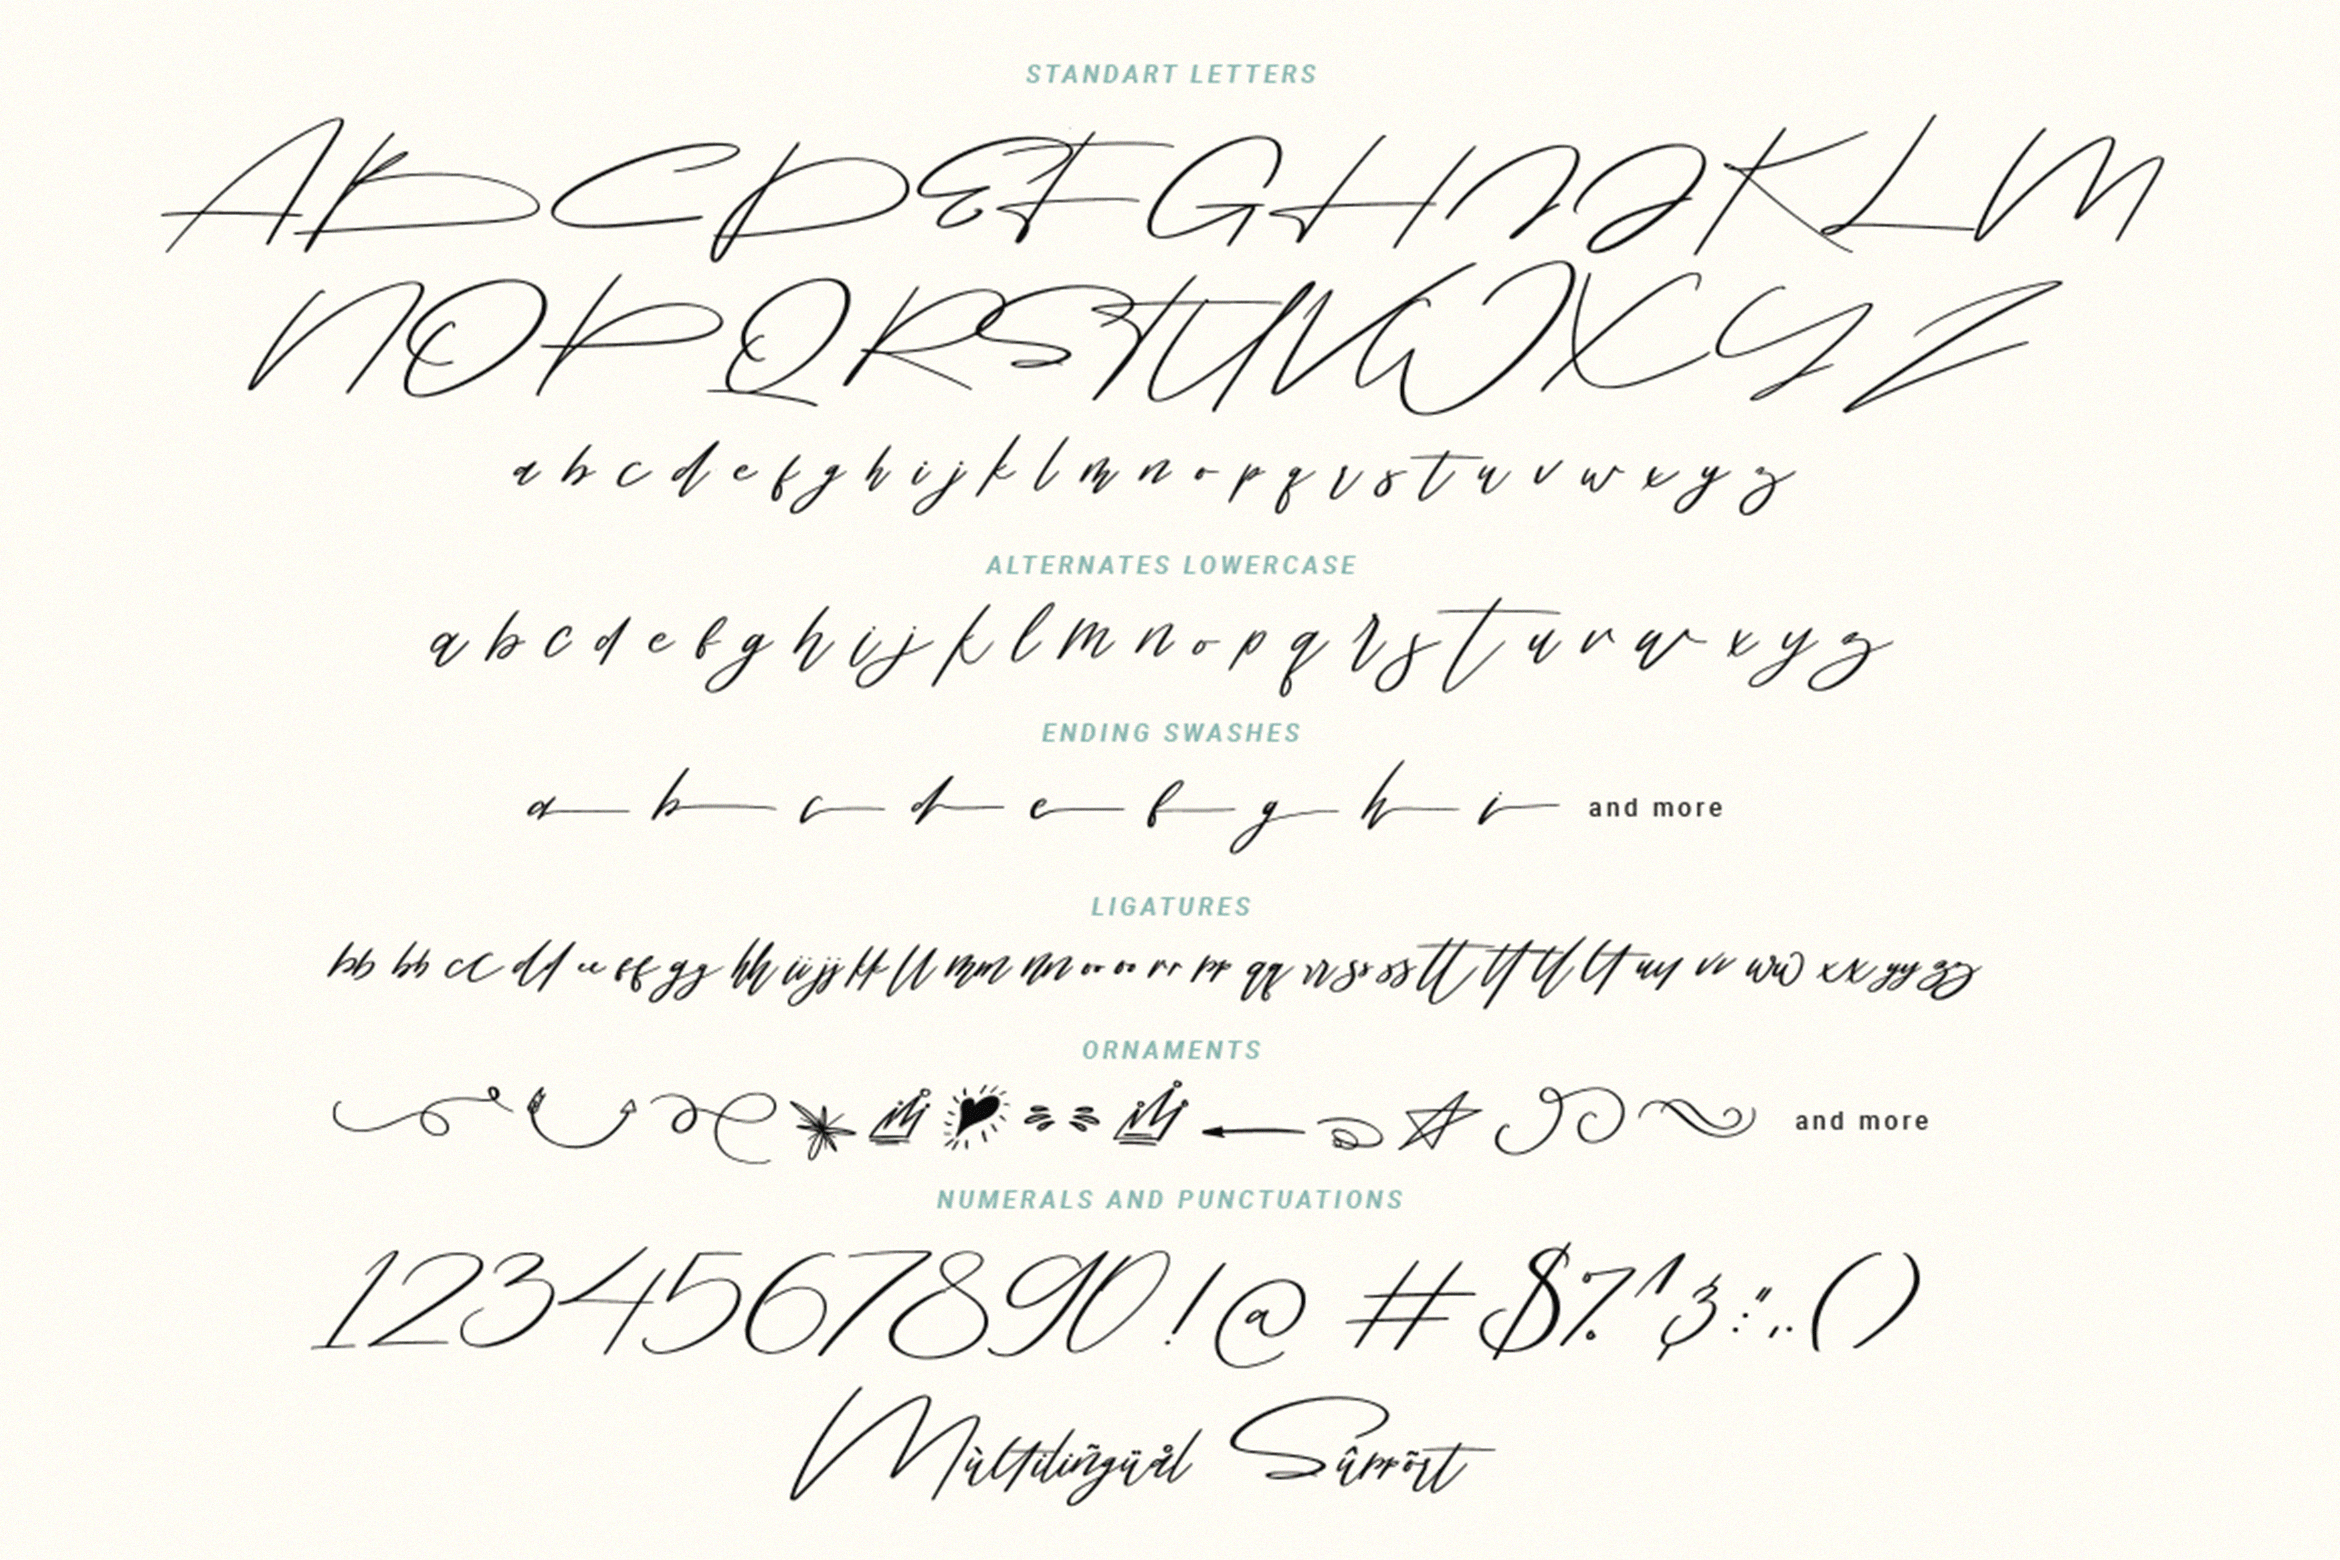 STANDART LETTERS
A B C D E F G H I J K L M
N O P Q R S T U V W X Y Z
a b c d e f g h i j k l m n o p q r s t u v w x y z
ALTERNATES LOWERCASE
a b c d e f g h i j k l m n o p q r s t u v w x y z
ENDING SWASHES
a b c d e f g h i and more
LIGATURES
bb bb cc dd ee ff gg hh ii jj kk ll mm nn oo oo rr pp qq rr ss ss tt tf tl lt uy vv ww xx yy zz
ORNAMENTS
and more
NUMERALS AND PUNCTUATIONS
1 2 3 4 5 6 7 8 9 0 ! @ # $ % ^ & : " , . ( )
Mùltiliñgüål Sûppõrt